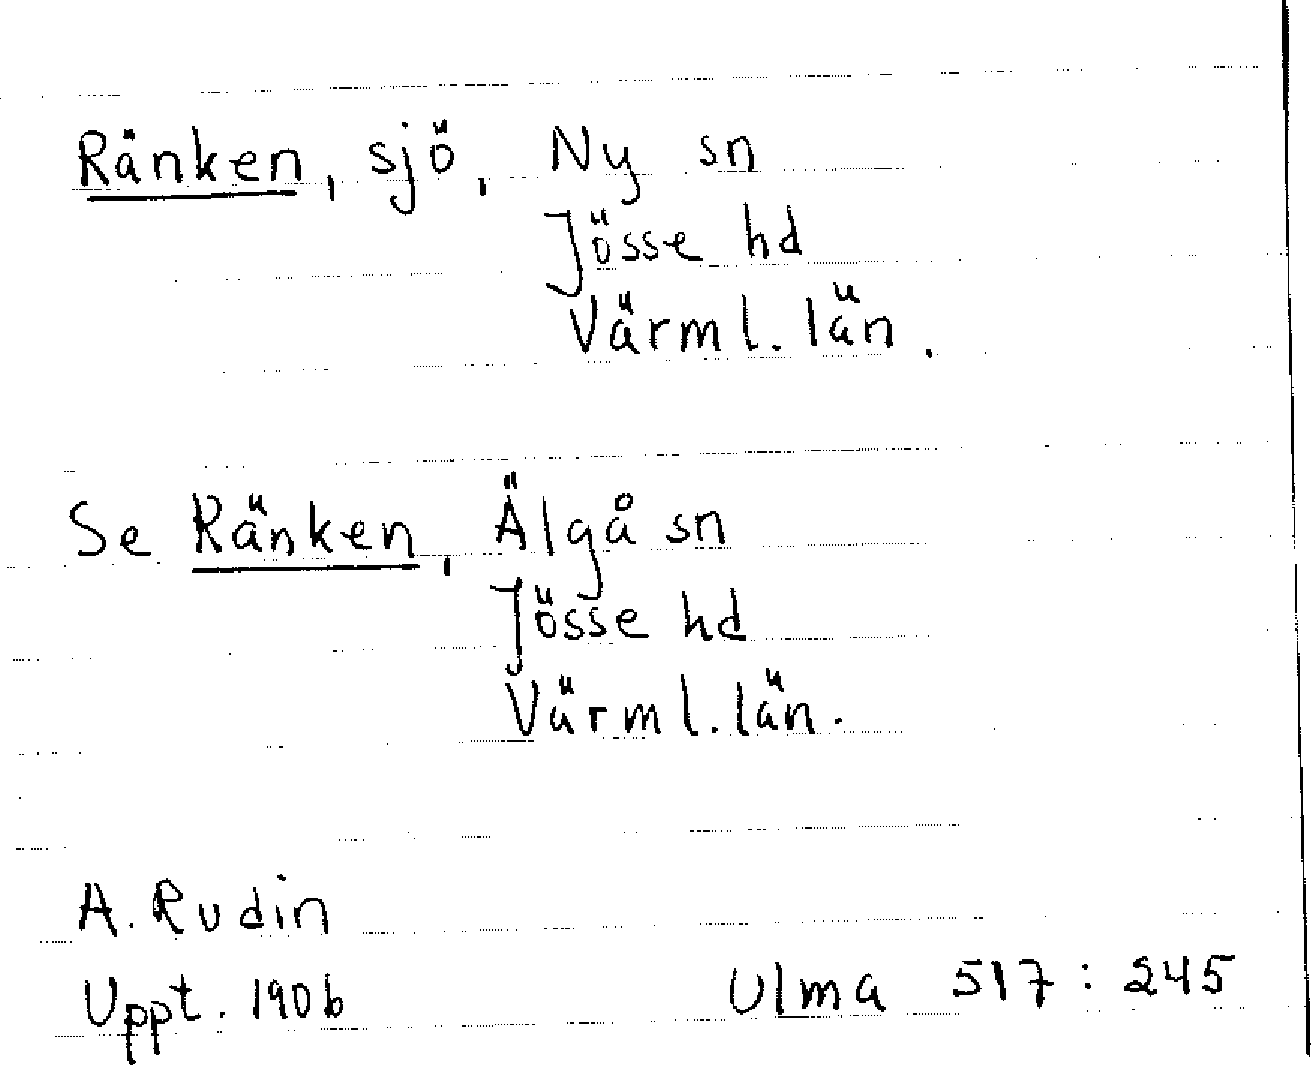 Ränken, sjö, Ny sn
Jösse hd
Värml. län.
Se Ränken, Älgå sn
Jösse hd
Värml. län.
A. Rudin
Uppt. 1906
Ulma 517:245